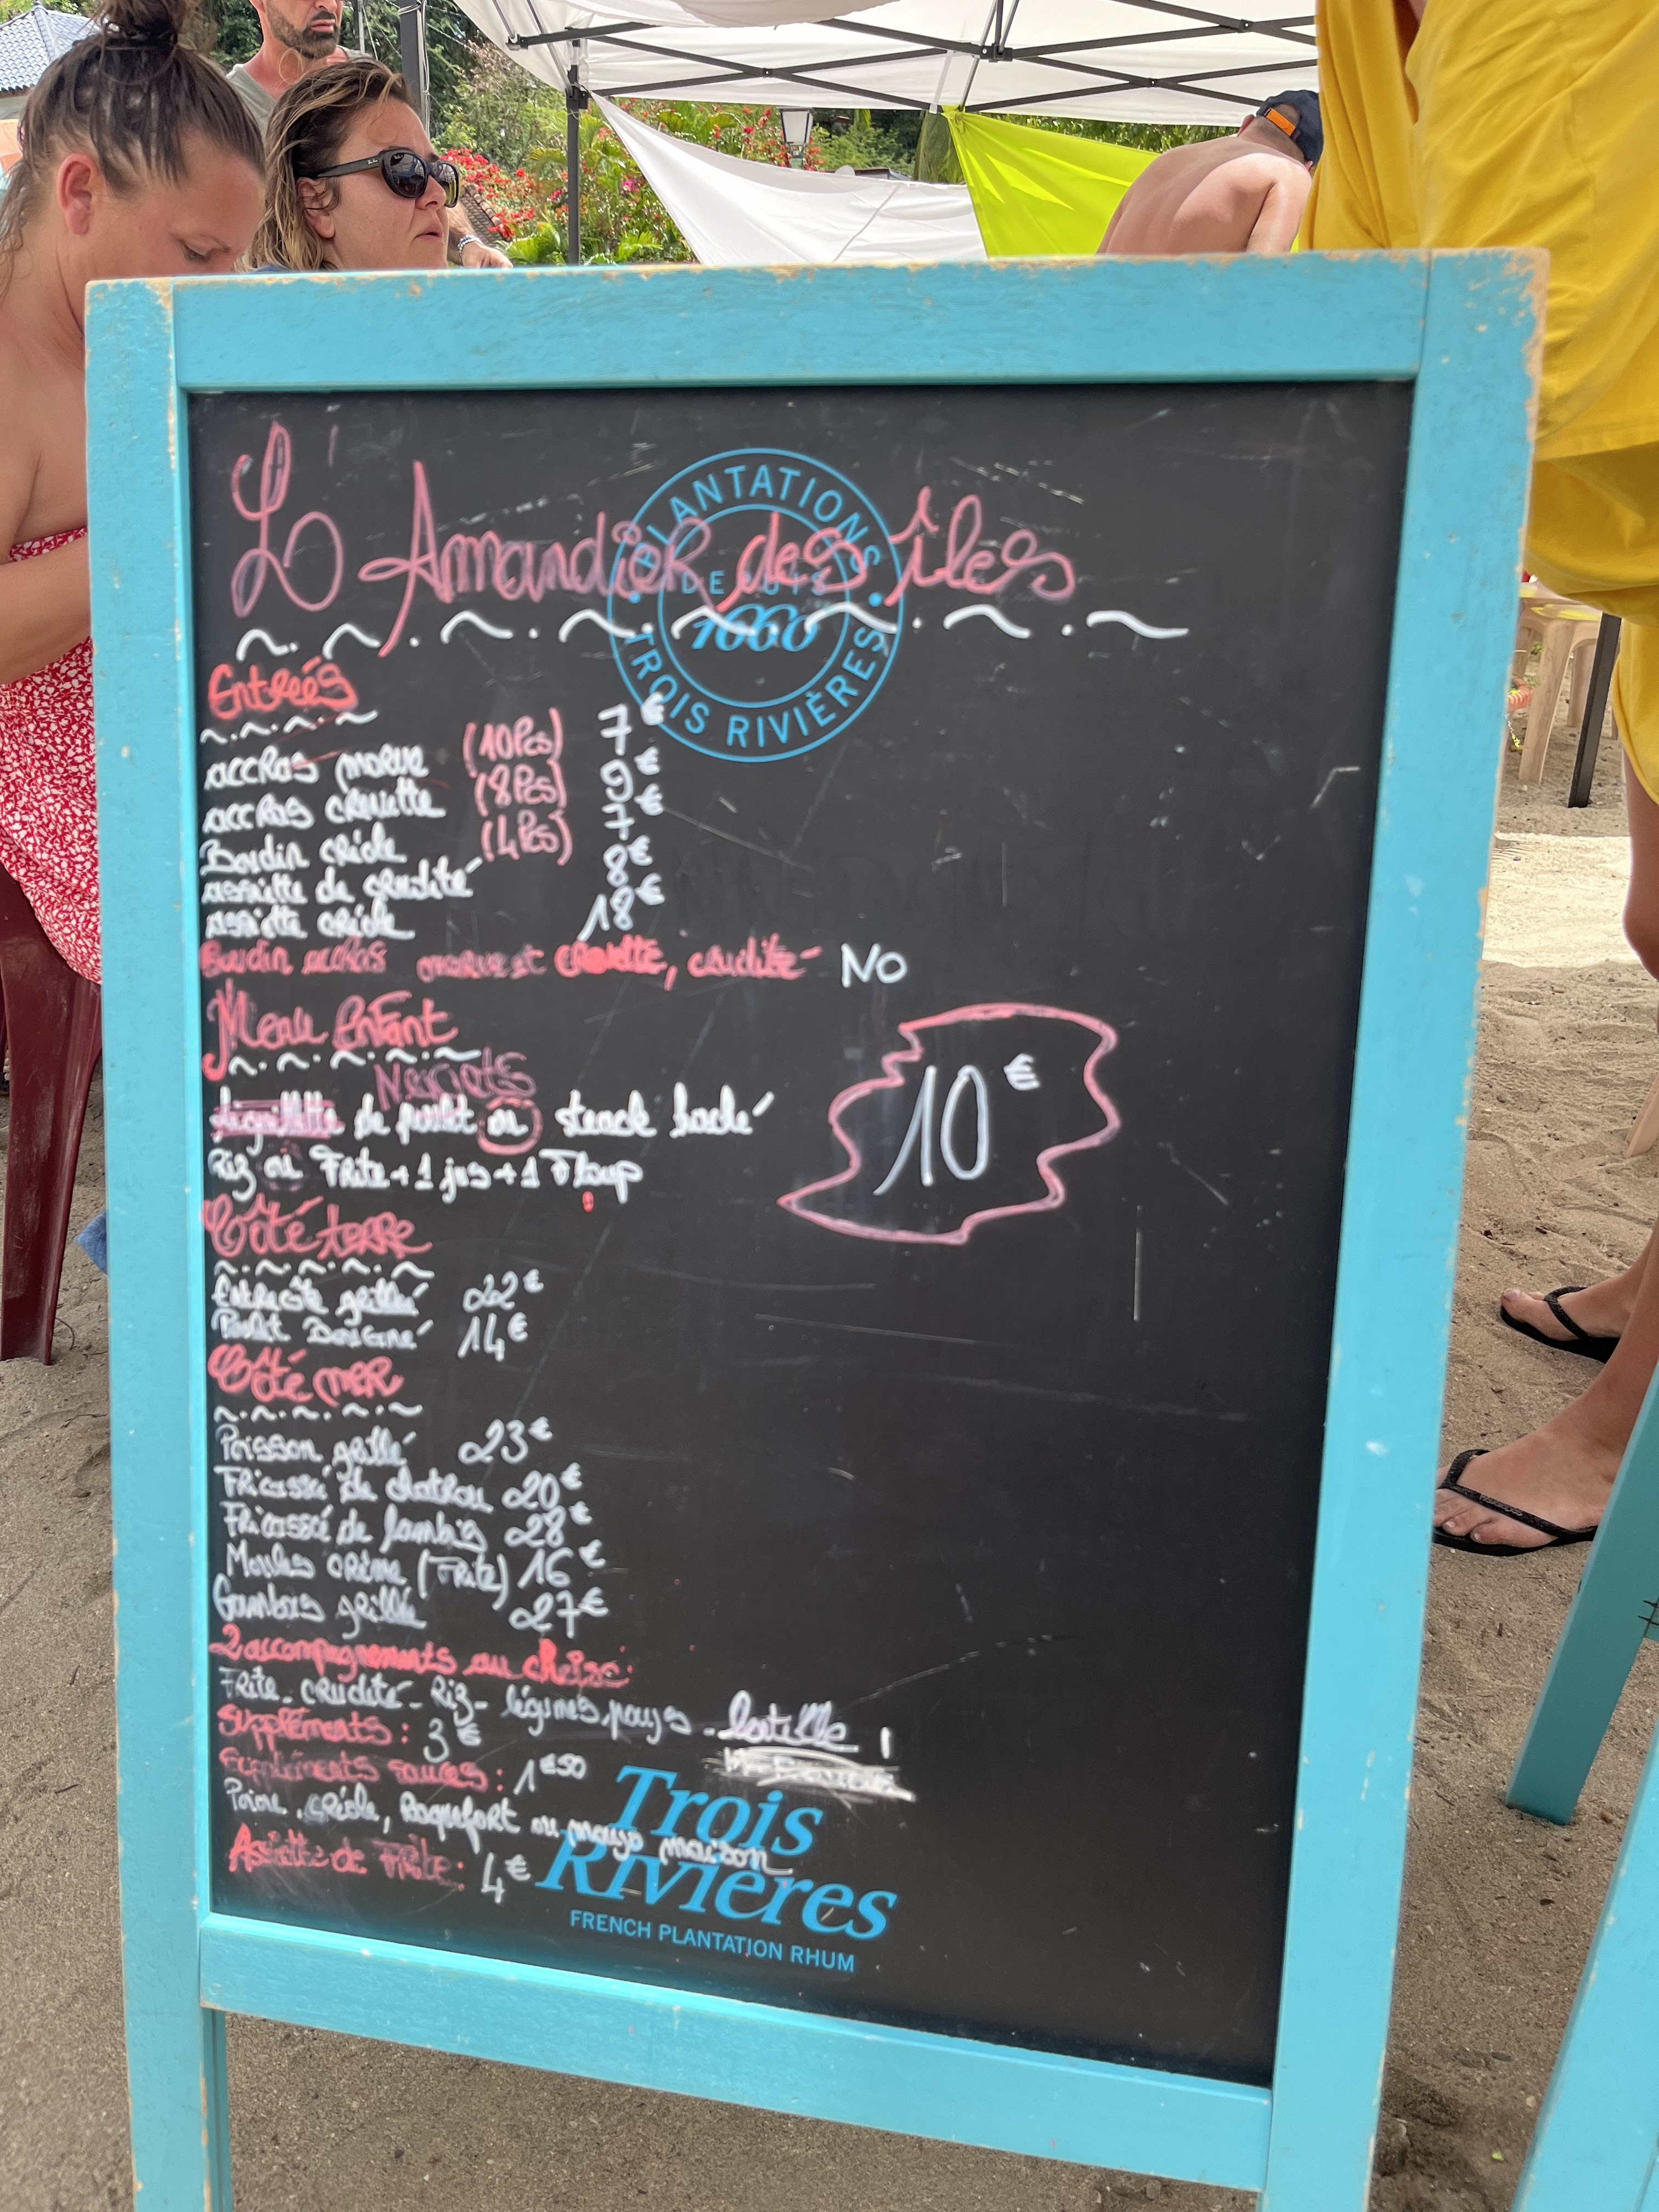 L'Amandier des îles
PLANTATIONS
DEPUIS
1660
TROIS RIVIÈRES
Entrées
accras morue (10Pcs) 7€
accras crevette (8Pcs) 9€
Boudin créole (4Pcs) 7€
assiette de crudité 8€
assiette créole 18€
Boudin accras morue et crevette, crudité NO
Menu Enfant
Nuggets
de poulet ou steack haché
10€
Riz ou Frite + 1 jus + 1 Floup
Côté terre
Entrecôte grillé 22€
Poulet Boucané 14€
Côté mer
Poisson grillé 23€
Fricassé de chatrou 20€
Fricassé de lambis 28€
Moules crème (Frite) 16€
Gambas grillée 27€
2 accompagnements au choix:
Frite - crudité - Riz - légumes pays - lentille
Suppléments : 3€
Suppléments sauces : 1€50
Poivre, créole, Roquefort ou mayo maison
Assiette de Frite : 4€
Trois
Rivières
FRENCH PLANTATION RHUM